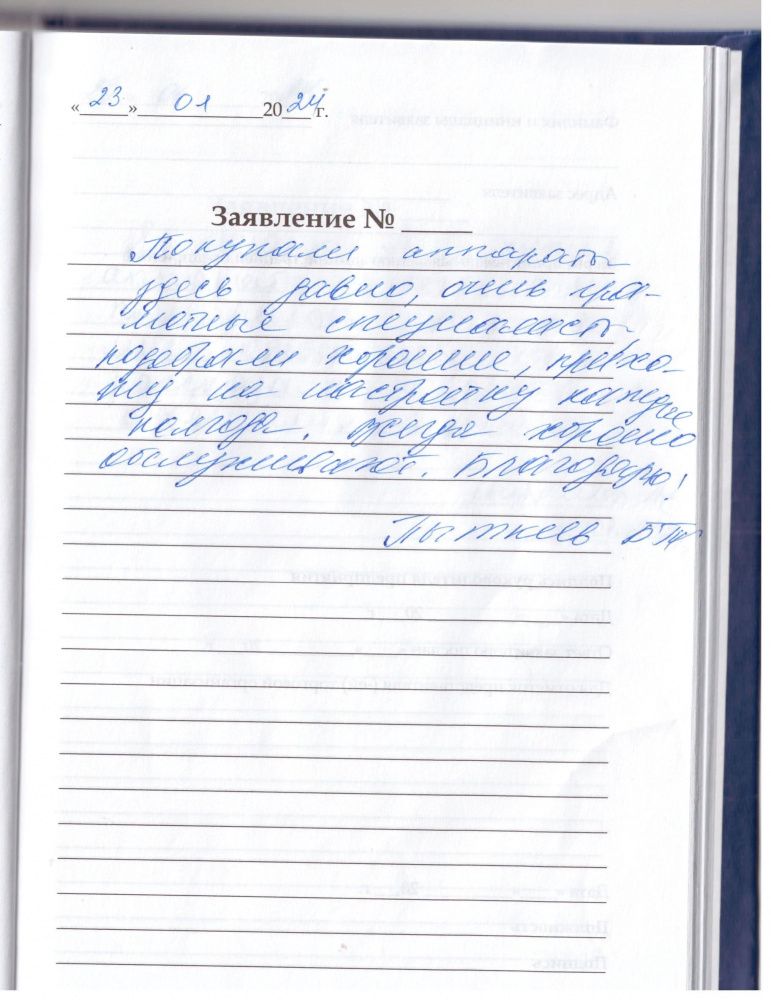 «23» 01 2024 г.
Заявление № _____
Покупали аппараты
здесь давно, очень гра-
мотные специалисты
подобрали хорошие, прихо-
жу на настройку каждые
полгода. Всегда хорошо
обслуживают. Благодарю!